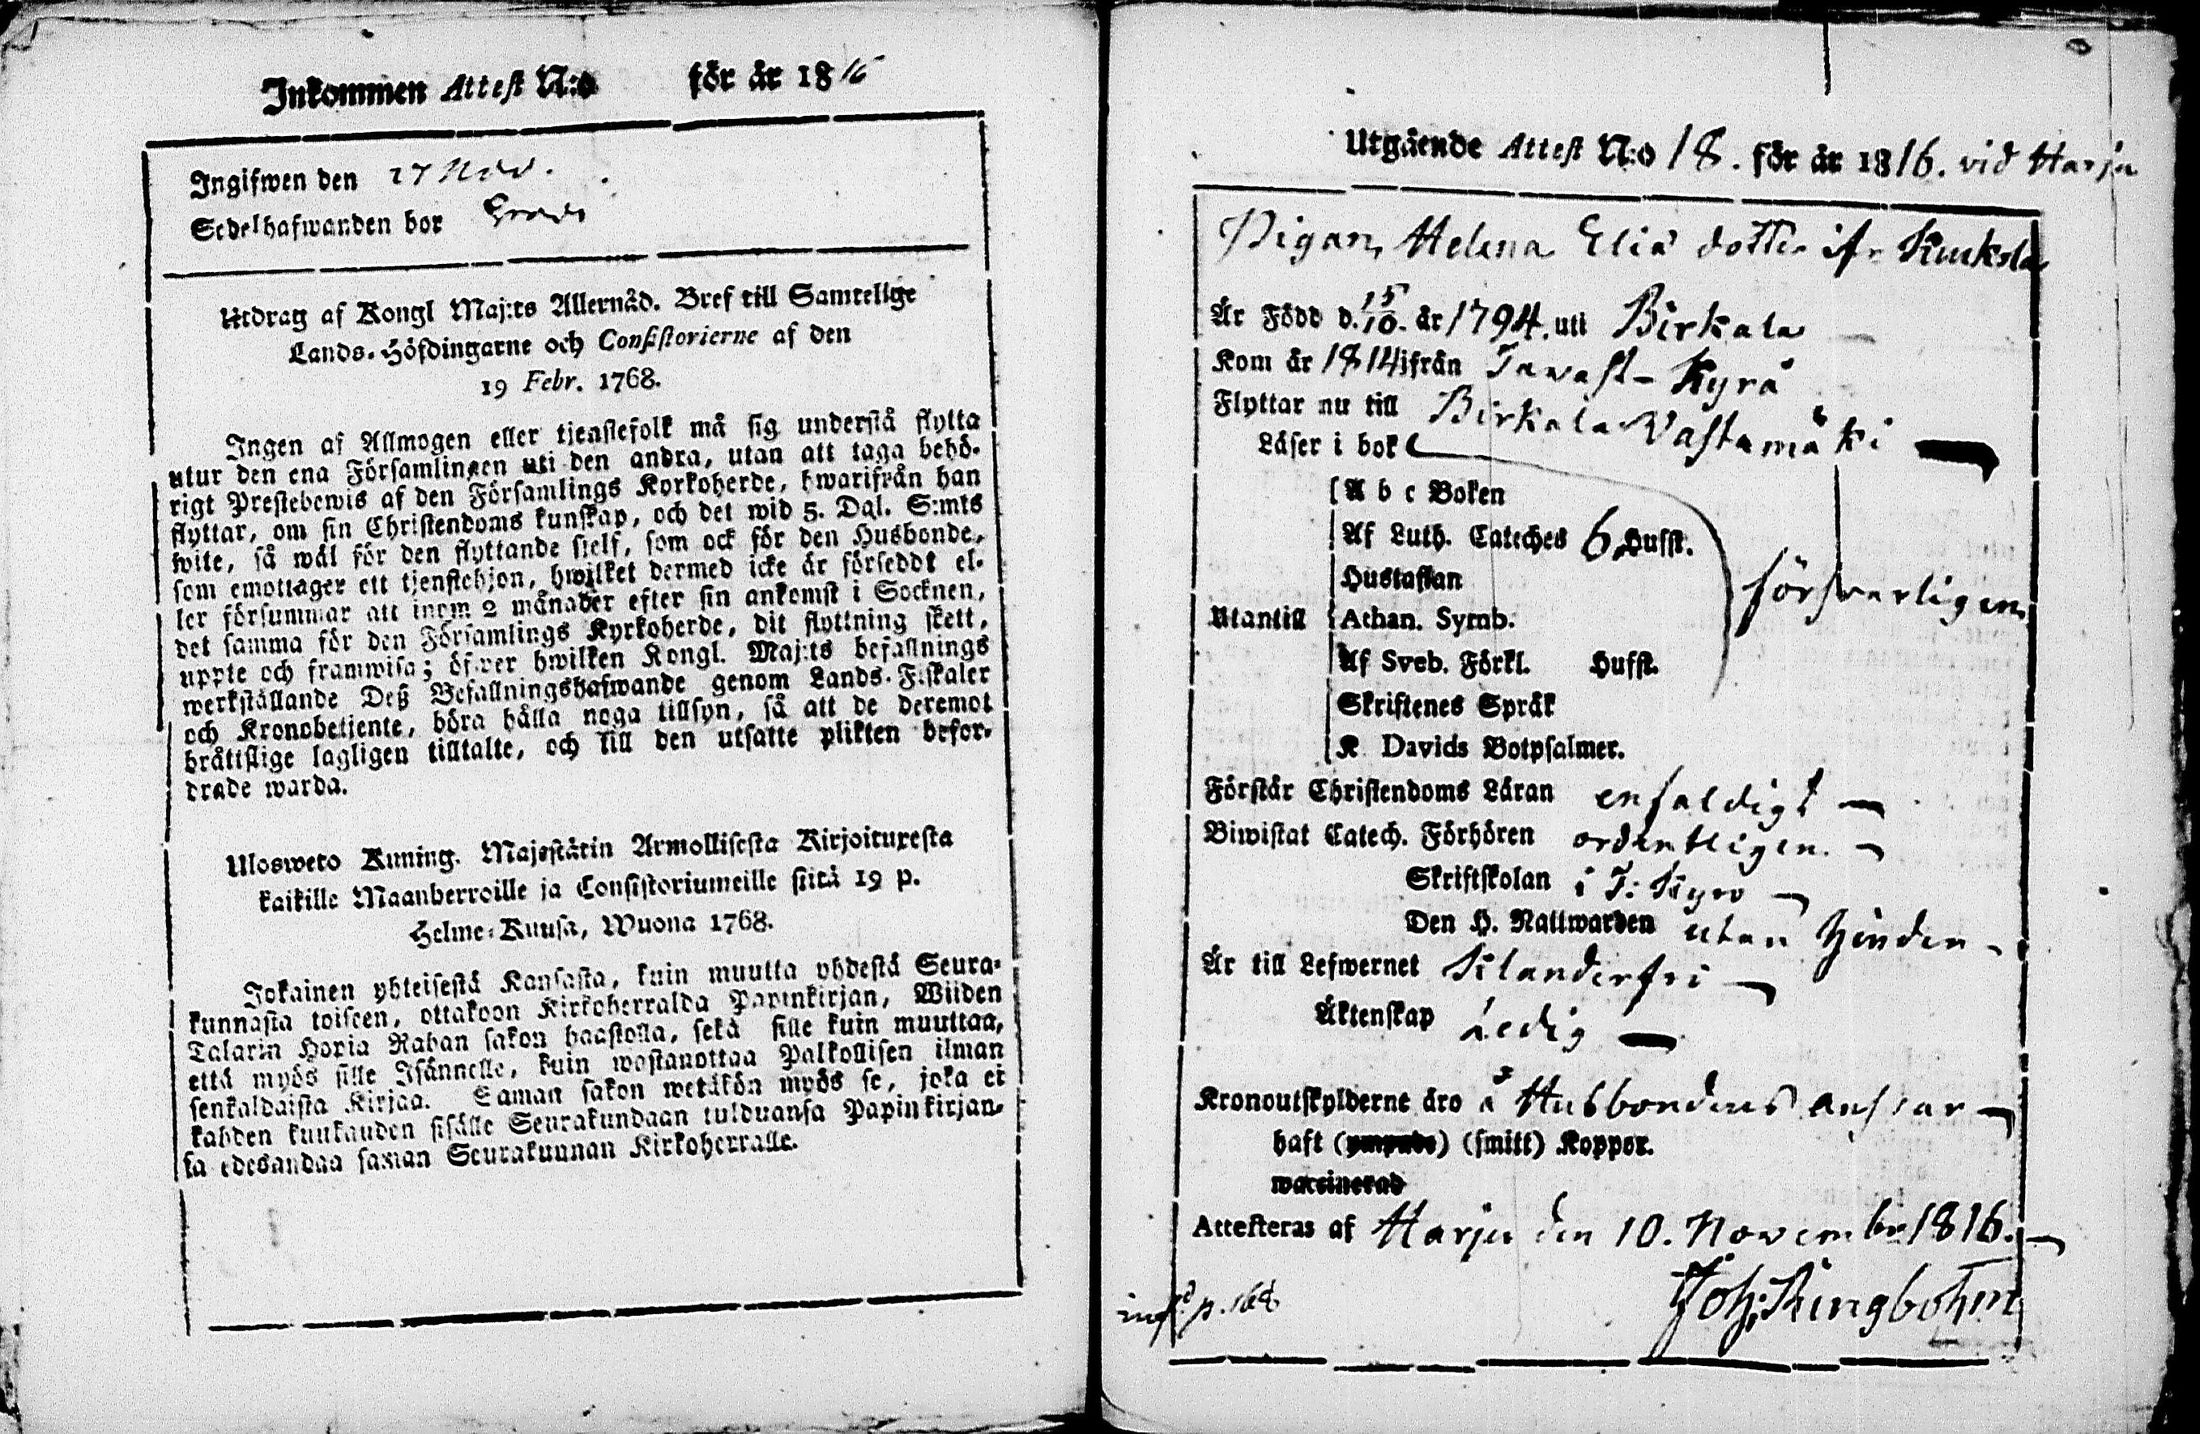 Inkommen Attest N:o för år 1816
Ingifwen den 17 Nov.
Sedelhafwanden bor
Utdrag af Kongl Maj:ts Allernåd. Bref till Samtellge
Lands-Höfdingarne och Consistorierne af den
19 Febr. 1768.
Ingen af Allmogen eller tjenstefolk må sig understå flytta
utur den ena Församlingen uti den andra, utan att taga behö-
rigt Prestebewis af den Församlings Kyrkoherde, hwarifrån han
flyttar, om sin Christendoms kunskap, och det wid 5. Dal. S:mts
wite, så wäl för den flyttande sielf, som ock för den Husbonde,
som emottager ett tjenstehjon, hwilket dermed icke är förseddt el-
ler försummar att inom 2 månader efter sin ankomst i Socknen,
det samma för den Församlings Kyrkoherde, dit flyttning skett,
uppte och framwisa; öfwer hwilken Kongl. Maj:ts befallnings
werkställande Deß Befallningshafwande genom Lands-Fiskaler
och Kronobetjente, böra hålla noga tillsyn, så att de deremot
bråttslige lagligen tilltalte, och till den utsatte plikten befor-
drade warda.
Ulosweto Kuning. Majestätin Armollisesta Kirjoituxesta
kaikille Maanherroille ja Consistoriumeille siitä 19 p.
Helme-Kuusa, Wuona 1768.
Jokainen yhteisestä Kansasta, kuin muutta yhdestä Seura-
kunnasta toiseen, ottakoon Kirkoherralda Papinkirjan, Wiiden
Talarin Hopia Rahan sakon haastolla, sekä sille kuin muuttaa,
että myös sille Isännelle, kuin wastanottaa Palkollisen ilman
senkaldaista Kirjaa. Saman sakon wetäkön myös se, joka ei
kahden kuukauden sisälle Seurakundaan tulduansa Papinkirjan-
sa edesandaa saman Seurakunnan Kirkoherralle.
Utgående Attest N:o 18. för år 1816. vid Harju
Pigan Helena Elias dotter ifr Kuuksla
Är Född d. 15/10. år 1794. uti Birkala
Kom år 1814 ifrån Tavast-Kyrå
Flyttar nu till Birkala Vastamäki
Läser i bok
A b c Boken
Af Luth. Cateches 6. Hufst.
Hustaflan
Utantill Athan. Symb. försvarligen
Af Sveb. Förkl. Hufst.
Skriftenes Språk
K Davids Botpsalmer.
Förstår Christendoms Läran enfaldigt
Biwistat Catech. Förhören ordentligen.
Skriftskolan i T: Kyro
Den H. Nattwarden utan hinder
Är till Lefwernet Klanderfri
Äktenskap Ledig
Kronoutskylderne äro å Husbondens ansvar
haft (ympade) (smitt) Koppor.
waccinerad
Attesteras af Harju den 10. November 1816.
Joh: Ringbohm
p. 168